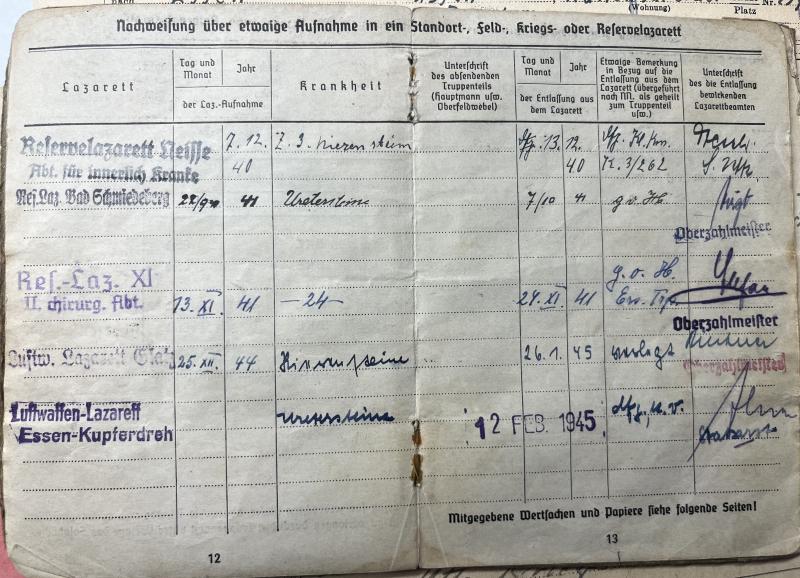 Nr.
(Wohnung)
Platz
Nachweisung über etwaige Aufnahme in ein Standort-, Feld-, Kriegs- oder Reservelazarett
Lazarett
Tag und Monat
Jahr
der Laz.-Aufnahme
Krankheit
Unterschrift des absendenden Truppenteils (Hauptmann usw. Oberfeldwebel)
Tag und Monat
Jahr
der Entlassung aus dem Lazarett
Etwaige Bemerkung in Bezug auf die Entlassung aus dem Lazarett (übergeführt nach N., als geheilt zum Truppenteil usw.)
Unterschrift des die Entlassung bewirkenden Lazarettbeamten
Reservelazarett Neisse 7. 12. Z. 3. Nierenstein 13. 12.
Abt. für innerlich Kranke 40 40 K. 3/262
Res. Laz. Bad Schmiedeberg 41 Ureterstein 7/10 41 g.v.H.
Oberzahlmeister
Res.-Laz. XI g.v.H.
II. chirurg. Abt. 13. XI. 41 —24— 24. XI. 41 Ers. Trp.
Oberzahlmeister
Luftw. Lazarett Glatz 25. XII. 44 Nierensteine 26. 1. 45 verlegt
Oberzahlmeister
Luftwaffen-Lazarett Uretersteine 12 FEB. 1945 dfg. k.v.
Essen-Kupferdreh
Mitgegebene Wertsachen und Papiere siehe folgende Seiten!
12
13